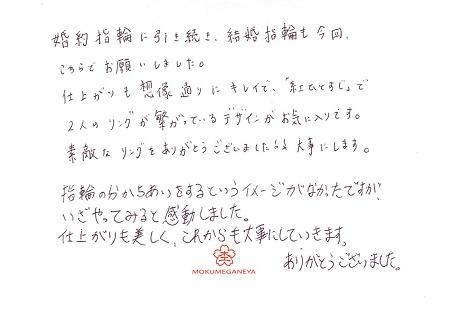 婚約指輪に引き続き、結婚指輪も今回、
こちらでお願いしました。
仕上がりも想像通りにキレイで、「紅ひとすじ」で
2人のリングが繋がっているデザインがお気に入りです。
素敵なリングをありがとうございました!! 大事にします。
指輪の分かちあいをするというイメージがなかったですが、
いざやってみると感動しました。
仕上がりも美しく、これからも大事にしていきます。
MOKUMEGANEYA
ありがとうございました。